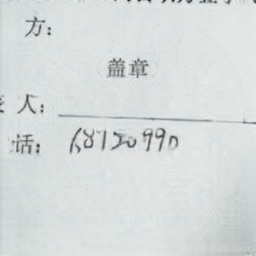 方：
盖章
人：
话： 68720990